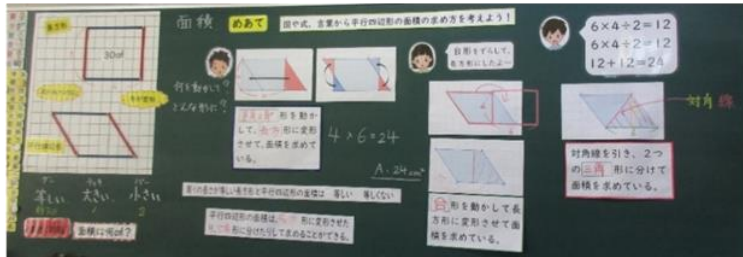 面積
めあて
図や式、言葉から平行四辺形の面積の求め方を考えよう！
長方形
30㎠
平行四辺形
等しい
大きい
小さい
面積は何㎠？
何を動かして？
どんな形に？
形を動か
して、長方形に変形
させて、面積を求めて
いる。
4×6=24
A.24㎠
周りの長さが等しい長方形と平行四辺形の面積は 等しい 等しくない
平行四辺形の面積は、
形に変形させた
り、三角形に分けたりして求めることができる。
台形をずらして、
長方形にしたよ
台形を動かして長
方形に変形させて面
積を求めている。
6×4÷2=12
6×4÷2=12
12+12=24
対角線
対角線を引き、２つ
の三角形に分けて
面積を求めている。